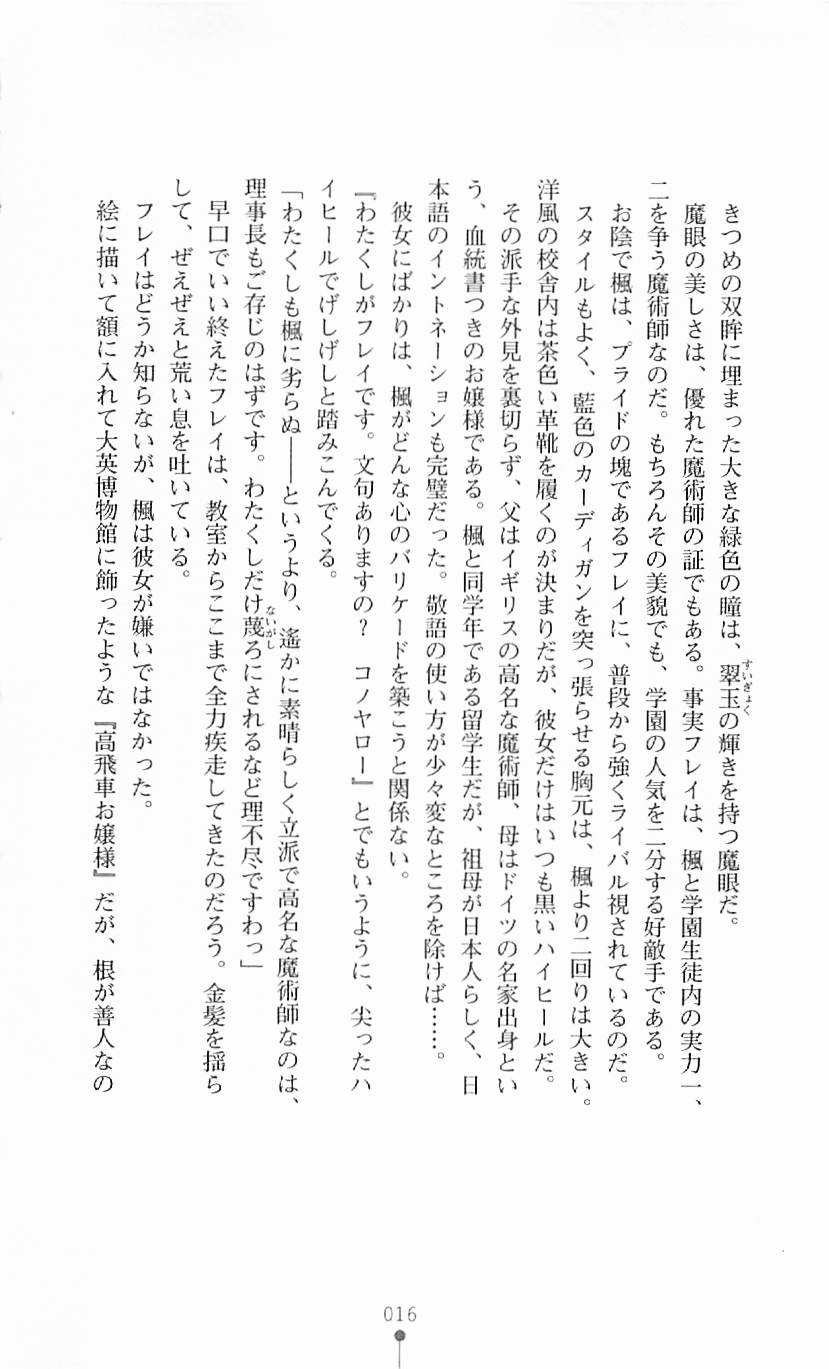 きつめの双眸に埋まった大きな緑色の瞳は、翠玉の輝きを持つ魔眼だ。
魔眼の美しさは、優れた魔術師の証でもある。事実フレイは、楓と学園生徒内の実力一、
二を争う魔術師なのだ。もちろんその美貌でも、学園の人気を二分する好敵手である。
お陰で楓は、プライドの塊であるフレイに、普段から強くライバル視されているのだ。
スタイルもよく、藍色のカーディガンを突っ張らせる胸元は、楓より二回りは大きい。
洋風の校舎内は茶色い革靴を履くのが決まりだが、彼女だけはいつも黒いハイヒールだ。
その派手な外見を裏切らず、父はイギリスの高名な魔術師、母はドイツの名家出身とい
う、血統書つきのお嬢様である。楓と同学年である留学生だが、祖母が日本人らしく、日
本語のイントネーションも完璧だった。敬語の使い方が少々変なところを除けば……。
彼女にばかりは、楓がどんな心のバリケードを築こうと関係ない。
『わたくしがフレイです。文句ありますの？　コノヤロー』とでもいうように、尖ったハ
イヒールでげしげしと踏みこんでくる。
「わたくしも楓に劣らぬ――というより、遙かに素晴らしく立派で高名な魔術師なのは、
理事長もご存じのはずです。わたくしだけ蔑ろにされるなど理不尽ですわっ」
早口でいい終えたフレイは、教室からここまで全力疾走してきたのだろう。金髪を揺ら
して、ぜえぜえと荒い息を吐いている。
フレイはどうか知らないが、楓は彼女が嫌いではなかった。
絵に描いて額に入れて大英博物館に飾ったような『高飛車お嬢様』だが、根が善人なの
すいぎょく
ないがし
016